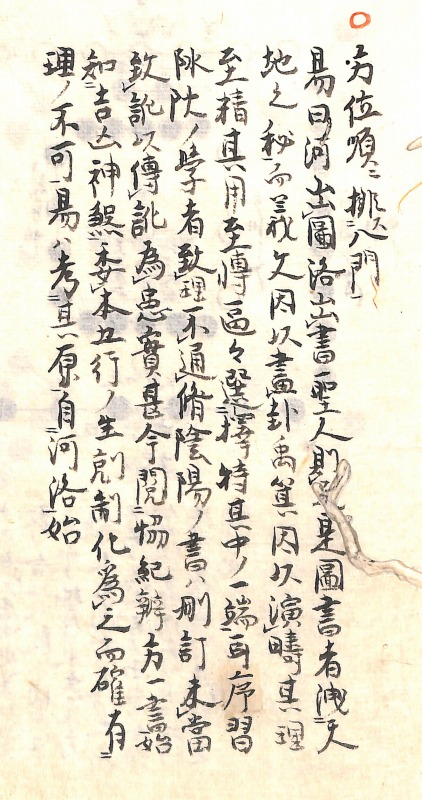 方位順ニ排八門
易曰河出圖洛出書聖人則之是圖書者洩天
地之秘而羲文因以畫卦禹箕因以演疇其理
至精其用至博區々選擇特其中ノ一端耳序習
陬ノ學者致理不通脩陰陽ノ書ハ刪訂未當
致訛以傳訛為患實甚今閱協紀辨方一書始
知吉凶神煞委本五行ノ生剋制化為之而確有
理ノ不可易ハ考其原自河洛始